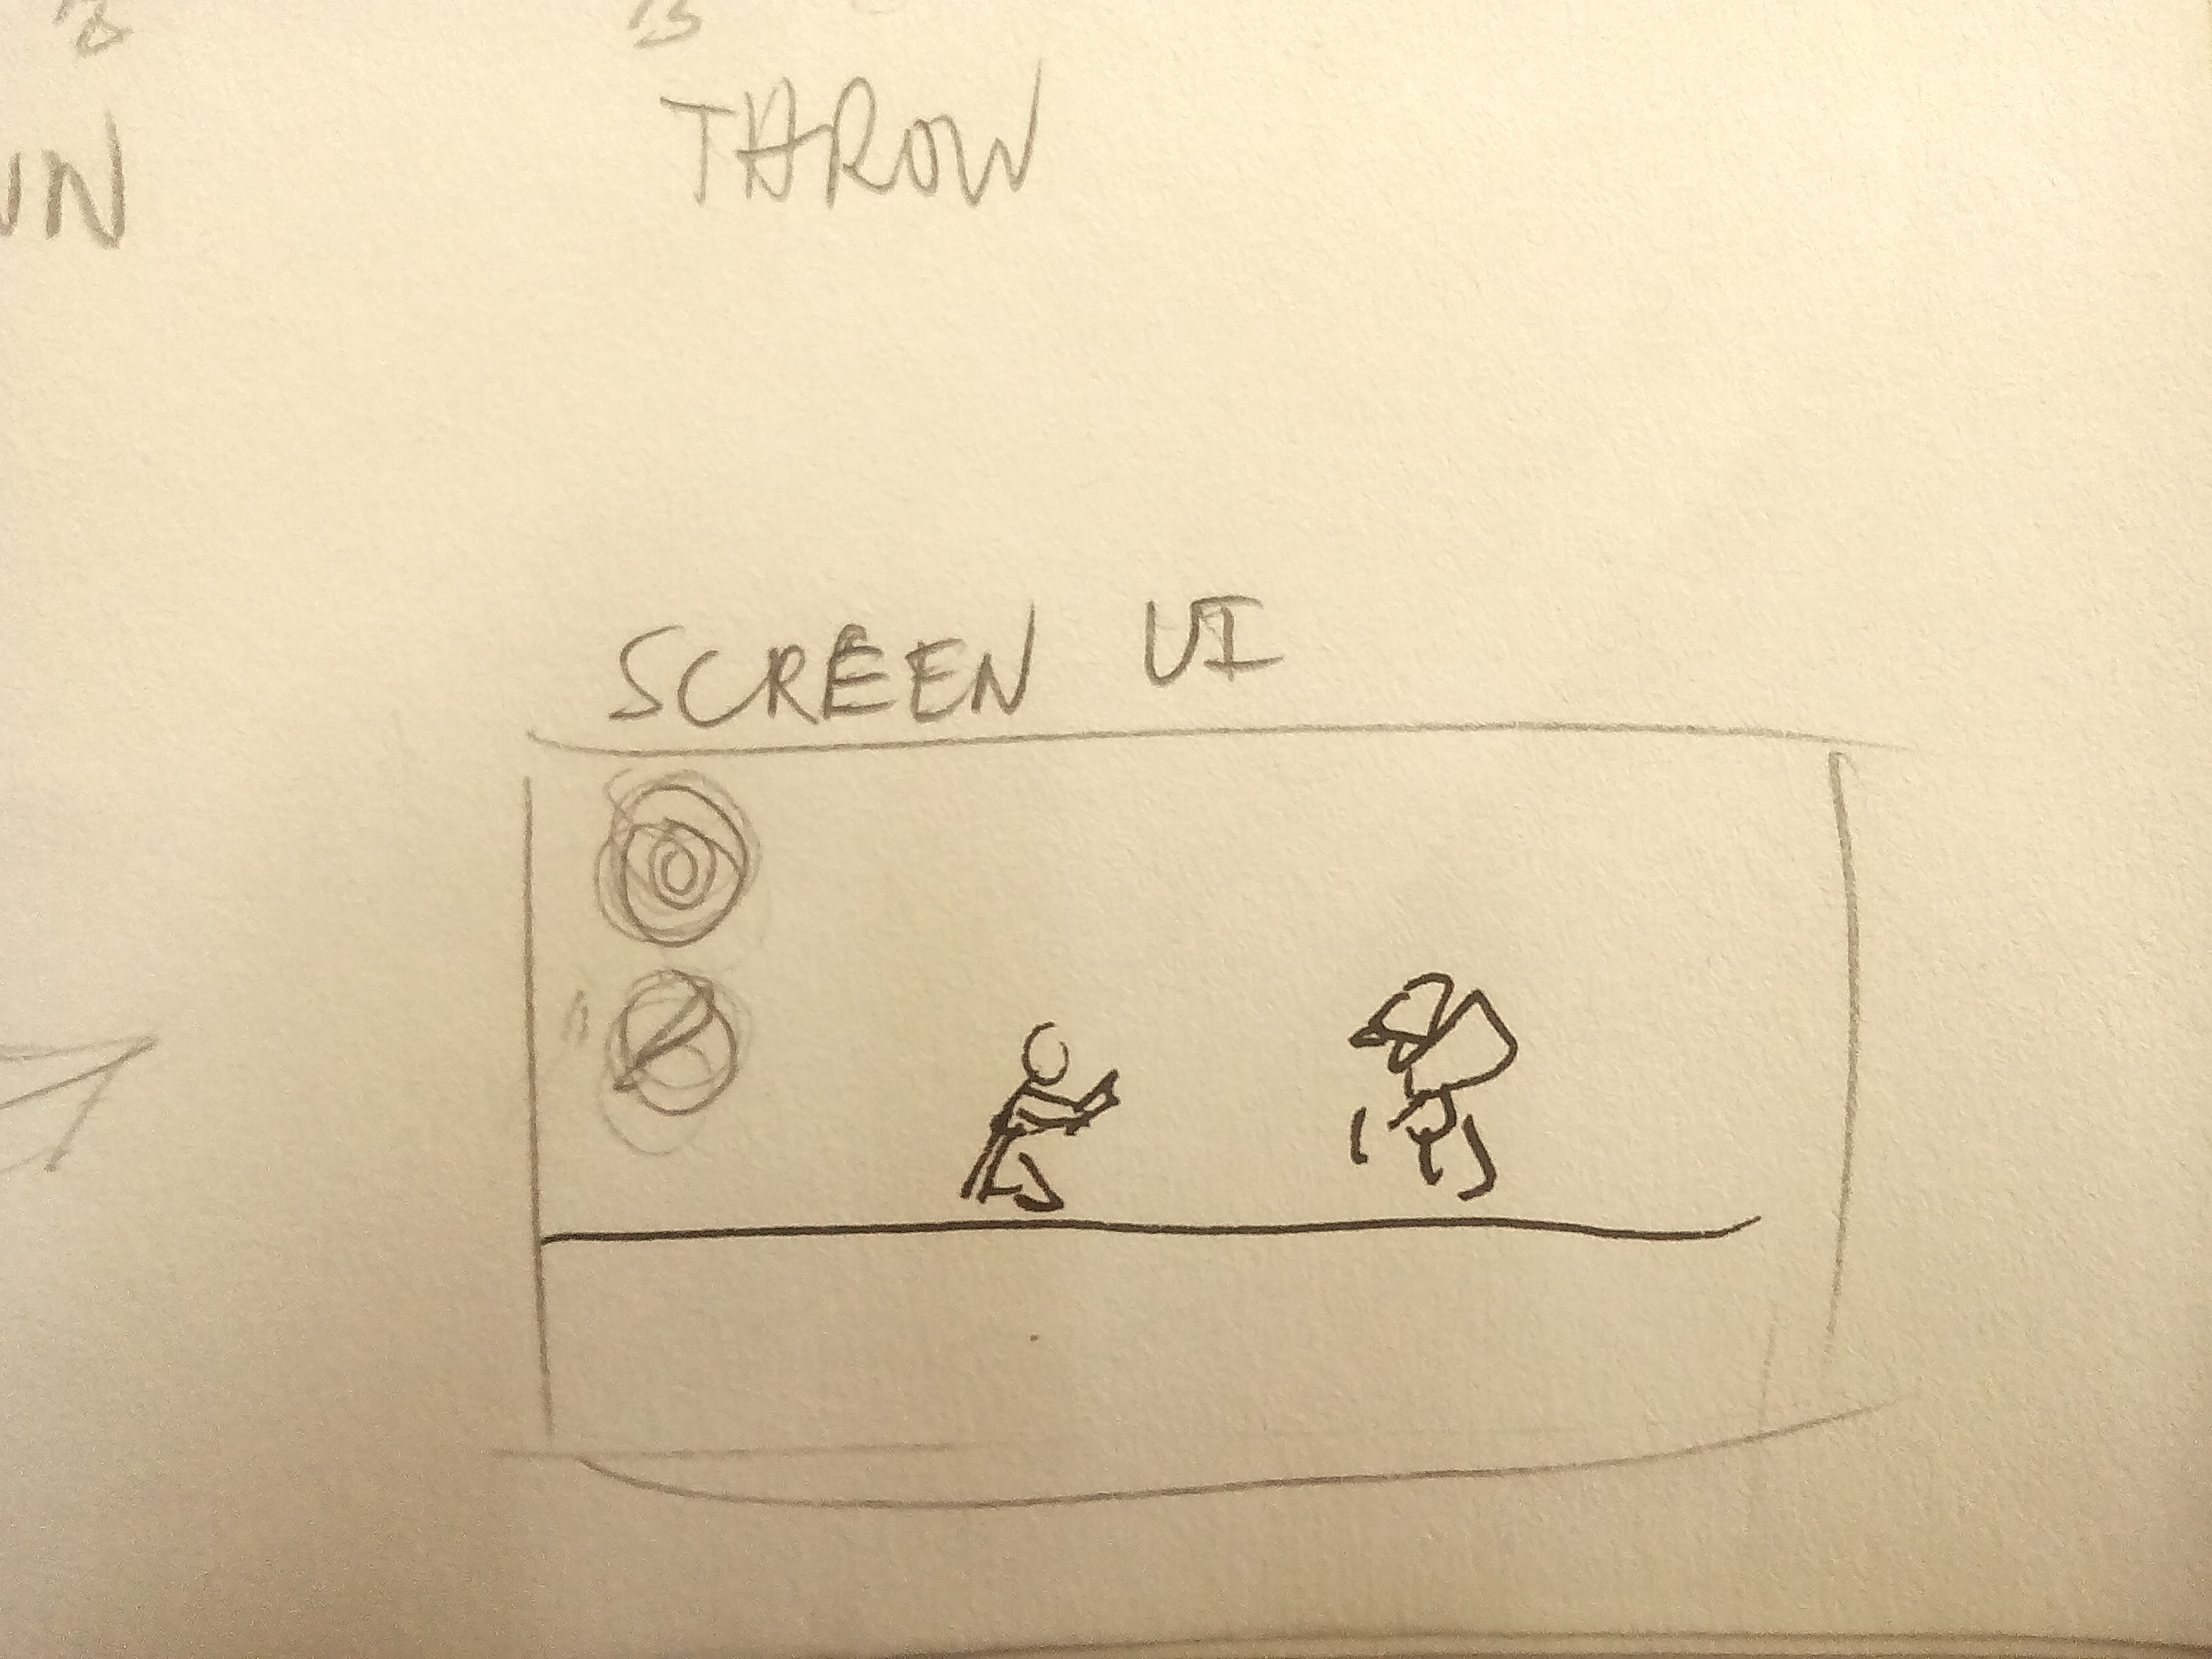 THROW
SCREEN UI